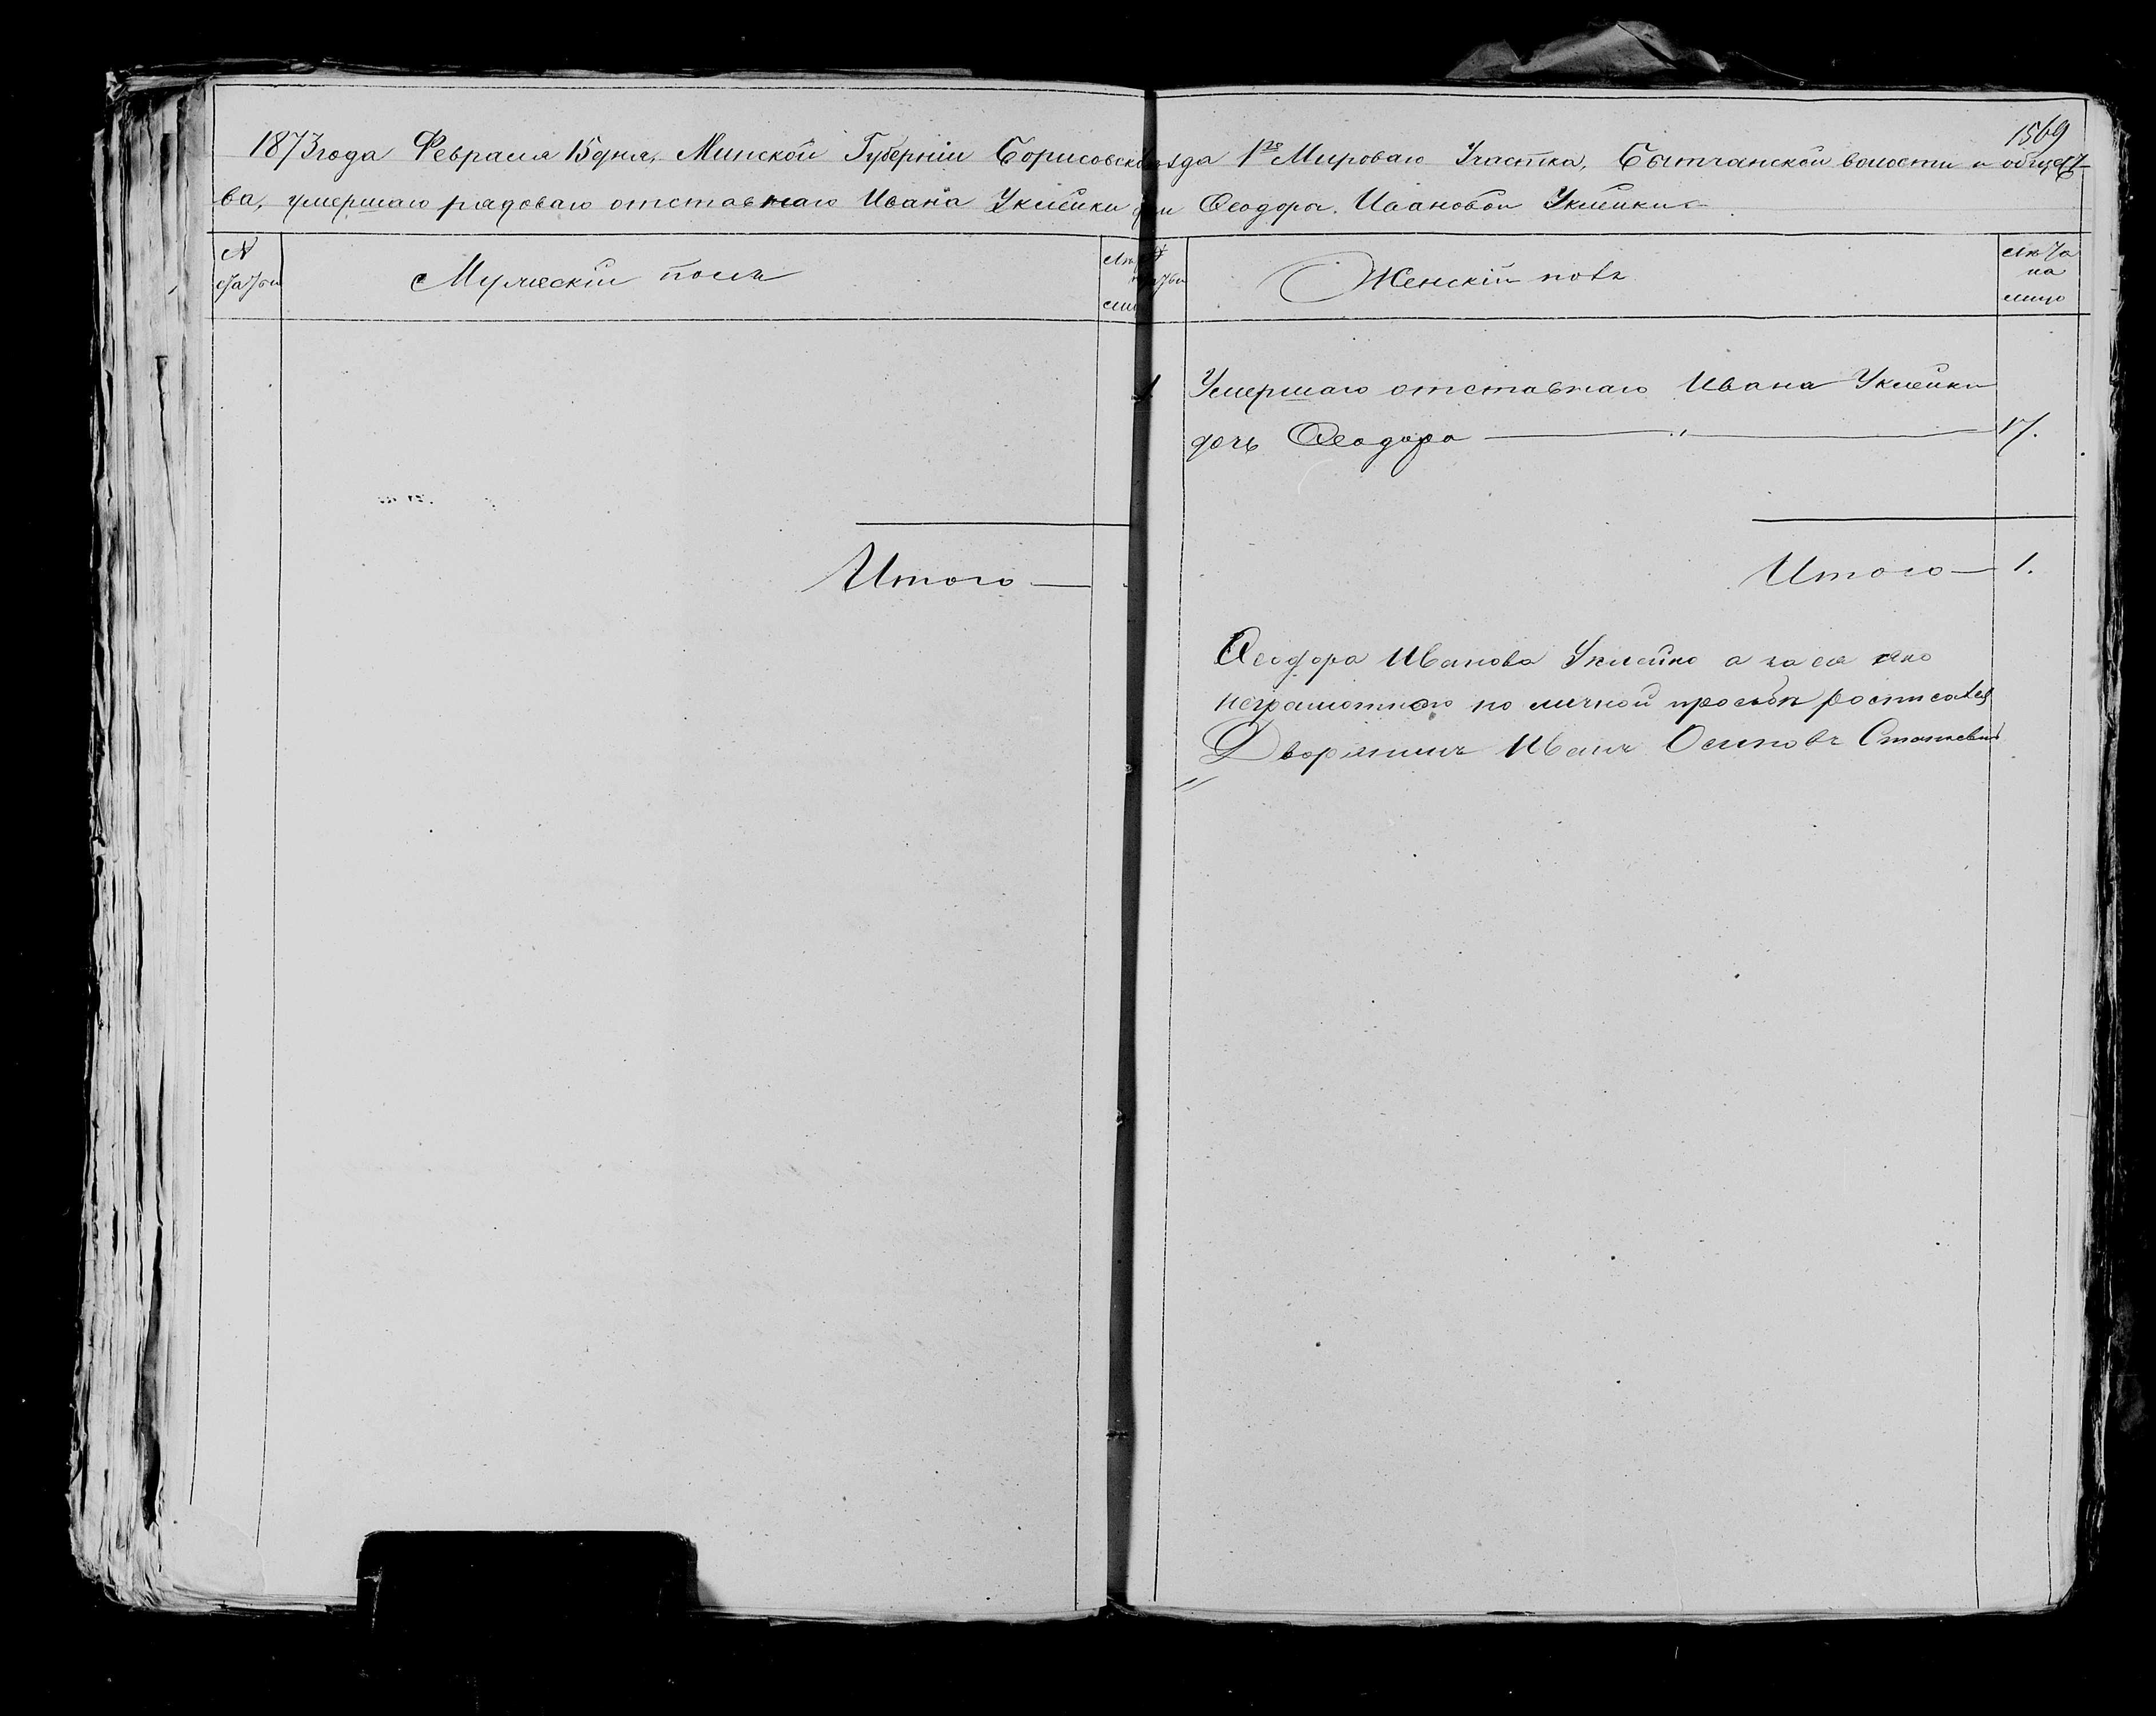 1569
1873 года Февраля 15 дня, Минской Губерніи Борисовск уѣзда 1го Мироваго Участка, Бытчанской волости и общест-
ва, умершаго рядоваго отставнаго Ивана Уклейки дочери Ѳеодоры Ивановой Уклейки
№ статьи
Мужескій полъ
Лѣта
Женскій полъ
Лѣта на лицо
1 Умершаго отставнаго Ивана Уклейки
дочь Ѳеодора — " — 17.
Итого —
Итого — 1.
Ѳеодора Иванова Уклейко а за ея яко
неграмотною по личной просьбѣ росписался
Дворянинъ Иванъ Осиповъ